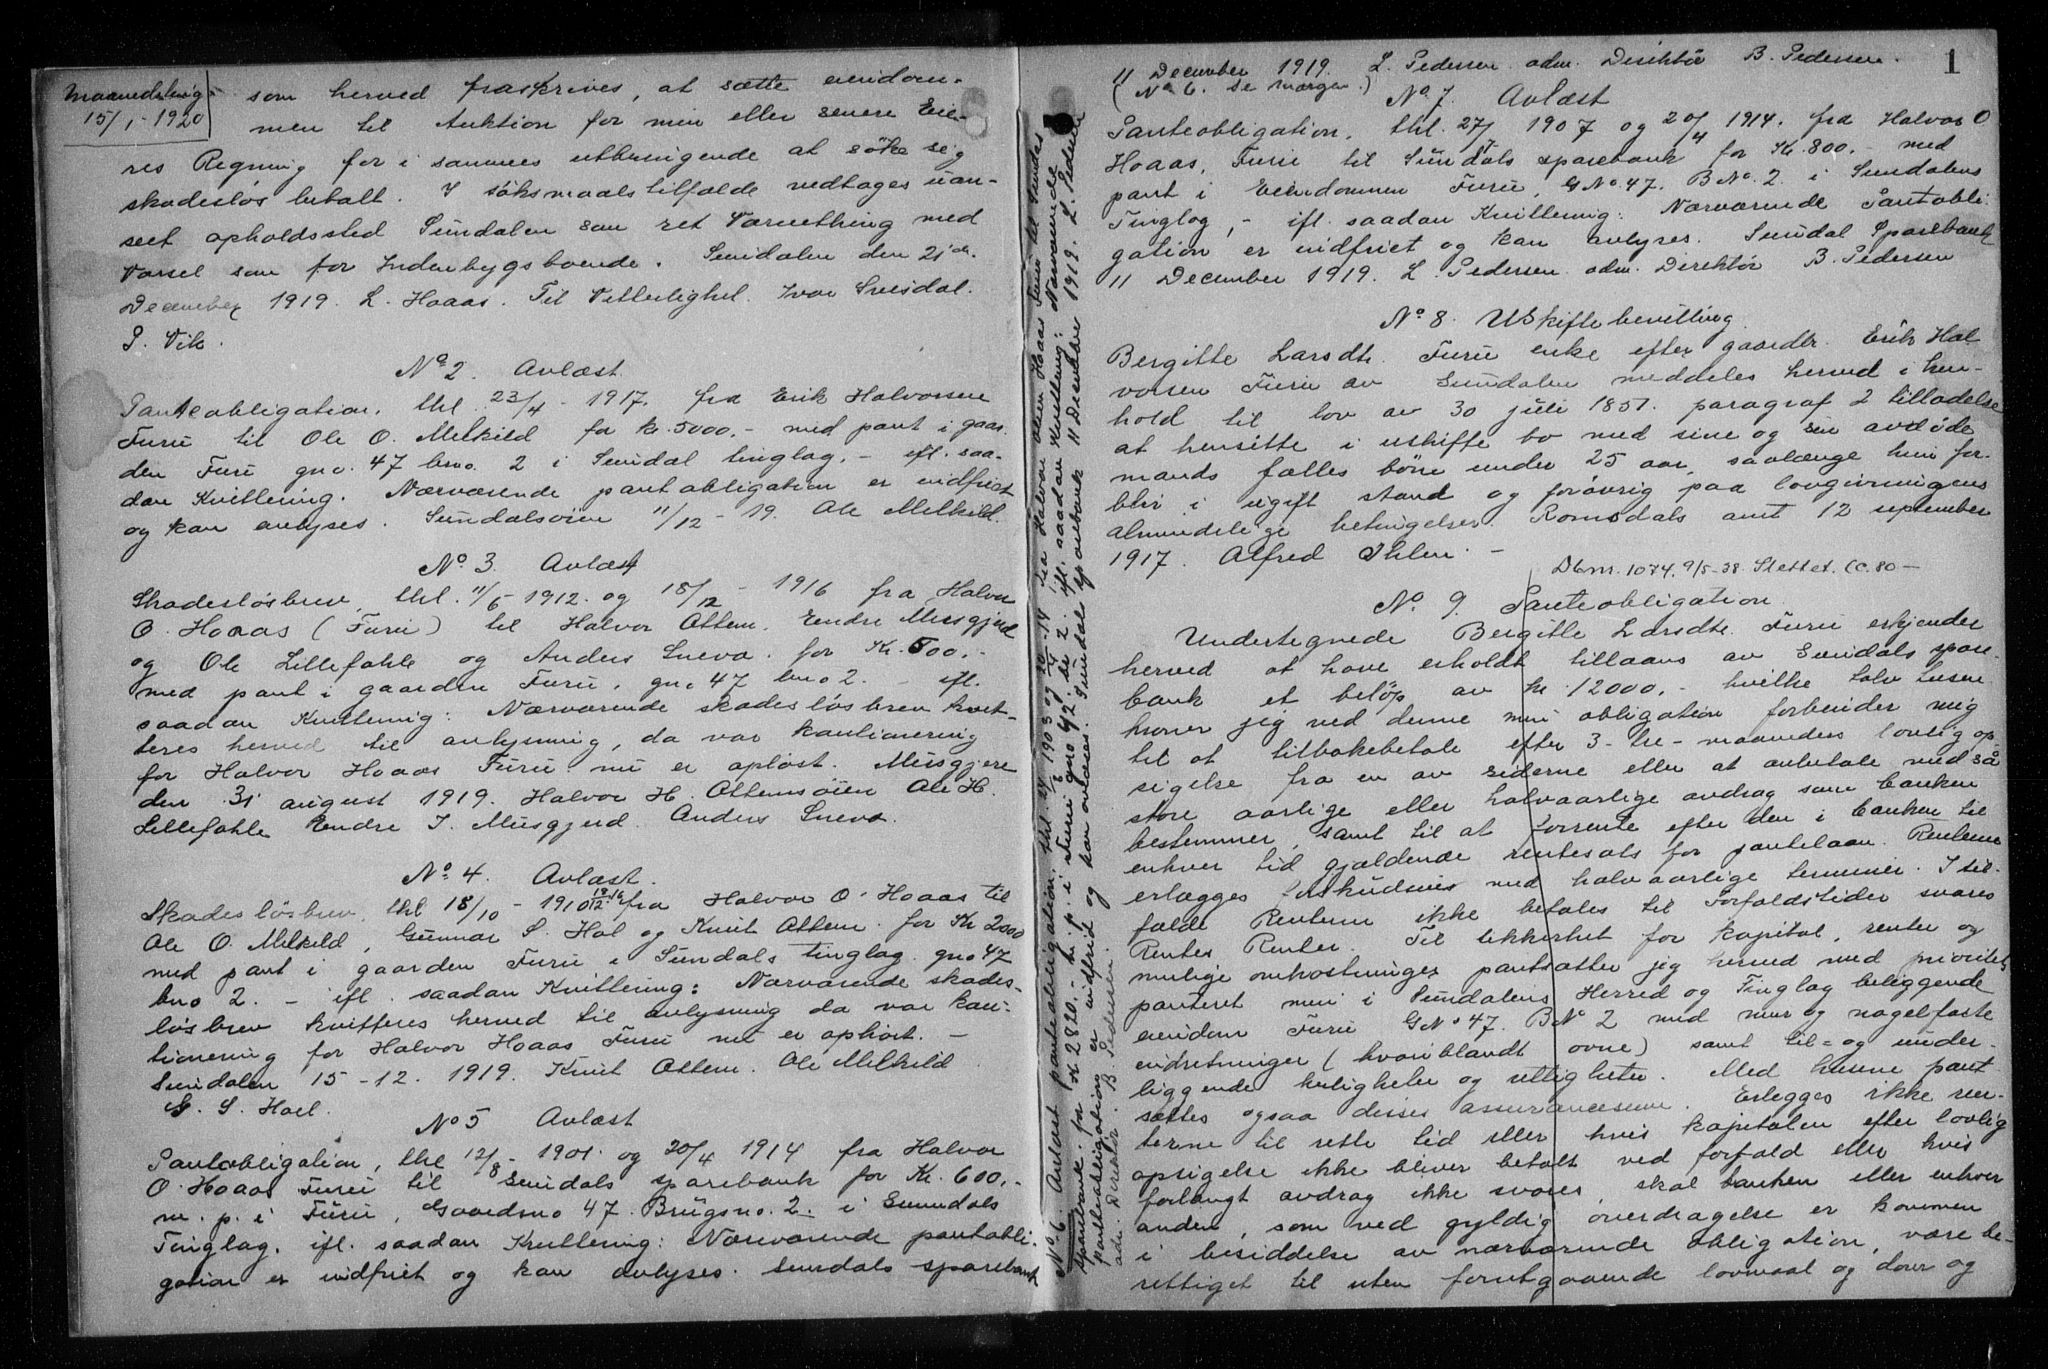 Maanedsting
15/1-1920
som herved fraskrives, at sætte eiendom-
men til Auktion for min eller senere Eie-
res Regning for i sammes utbringende at søke sig
skadesløs betalt. I søksmaalstilfælde vedtages uan-
seet opholdssted Sundalen som ret Værnething med
Varsel som for Indenbygsboende. Sundalen den 21de
December 1919. L. Hoaas. Til Vitterlighet. Ivar Svisdal.
P. Vik.
No 2. Avlæst
Panteobligation, thl. 23/4 - 1917. fra Erik Halvorsen
Furu til Ole O. Melkild for kr. 5000.- med pant i gaar-
den Furu gno. 47 bno. 2 i Sundal tinglag, - ifl. saa-
dan Kvittering. Nærværende pantobligation er indfriet
og kan avlyses. Sundalsøien 11/12 - 19. Ole Melkild.
No 3. Avlæst
Skadesløsbrev, thl. 11/6 1912. og 18/12 - 1916 fra Halvor
O. Hoaas (Furu) til Halvor Ottem. Endre Musgjerd
og Ole Lillefahle og Anders Sneva. for Kr. 500.-
med pant i gaarden Furu, gno 47 bno 2. - ifl.
saadan Kvittering: Nærværende skadesløsbrev kvit-
teres herved til avlysning, da vor kautionering
for Halvor Hoaas Furu nu er opløst. Musgjerd
den 31 august 1919. Halvor H. Ottemsøien Ole H.
Lillefahle Endre I. Musgjerd. Anders Sneva.
No 4. Avlæst.
Skadesløsbrev, thl 18/10 - 1910 fra Halvor O. Hoaas til
Ole O. Melkild, Gunnar S. Hol og Knut Ottem. for Kr 2000
med pant i gaarden Furu i Sundals tinglag. gno 47
bno 2. - ifl. saadan Kvittering: Nærværende skades-
løsbrev kvitteres herved til avlysning da vor kau-
tionering for Halvor Hoaas Furu nu er ophørt. -
Sundalen 15-12. 1919. Knut Ottem. Ole Melkild
G. S. Hoel.
No 5 Avlæst
Pantobligation, thl 12/8 - 1901. og 20/4 1914 fra Halvor
O. Hoaas Furu til Sundals sparebank for Kr. 600,-
m. p. i Furu, Gaardsno 47. Brugsno. 2. i Sunndals
Tinglag. ifl. saadan Kvittering: Nærværende pantobli-
gation er indfriet og kan avlyses. Sundals sparebank
No 6. Avlæst panteobligation, thl. 1903 og 20/4-14 fra Halvor Olsen Hoaas Furu til Sundals
sparebank. for kr 2820.- m. p. i Furu gno 47. br 2. ifl. saadan Kvittering: Nærværende
pantobligation er indfriet og kan avlæses. Sundals sparebank 11 Desember 1919. L. Pedersen
adm. Direktør. B. Pedersen.
1
11 December 1919. L. Pedersen adm. Direktør B. Pedersen.
(No 6. se margen.)
No 7. Avlæst
Panteobligation, thl. 27/ 1907 og 20/4 1914. fra Halvor O
Hoaas, Furu til Sundals sparebank for Kr. 800.- med
pant i Eiendommen Furu, GNo. 47. BNo. 2. i Sundalens
Tinglag, - ifl. saadan Kvittering: Nærværende Pantobli-
gation er indfriet og kan avlyses. Sundal Sparebank
11 December 1919. L. Pedersen adm. Direktør B. Pedersen
No 8. Uskiftebevilling.
Bergitte Larsdtr. Furu enke efter gaardbr. Erik Hal-
vorsen Furu av Sundalen meddeles herved i hen-
hold til lov av 30 juli 1851. paragraf 2 tilladelse
at hensitte i uskifte bo med sine og sin avdøde
mands fælles børn under 25 aar, saalænge hun for-
blir i ugift stand og forøvrig paa lovgivningens
almindelige betingelser. Romsdals amt 12 september
1917. Alfred Ihlen. -
Dbnr. 1074. 9/5-38. Slettet. CC. 80 -
No. 9. Panteobligation
Undertegnede Bergitte Larsdtr. Furu erkjender
herved at have erholdt tillaans av Sundals spare-
bank et beløp av kr. 12000.- hvilke tolv tusen
kroner jeg ved denne min obligation forbinder mig
til at tilbakebetale efter 3- tre- maaneders lovlig op-
sigelse fra en av siderne eller at avbetale med så
store aarlige eller halvaarlige avdrag som banken
bestemmer, samt til at forrente efter den i banken til
enhver tid gjældende rentesats for pantelaan. Renterne
erlægges forskudsvis med halvaarlige terminer. I til-
fælde Renterne ikke betales til Forfaldstider svares
Rentes Renter. Til sikkerhet for kapital, renter og
mulige omkostninger pantsætter jeg herved med prioritets
panteret min i Sundalens Herred og Tinglag beliggende
eiendom Furu GNo 47. BNo 2 med mur og nagelfaste
indretninger (hvoriblandt ovne) samt til- og under-
liggende herligheter og rettigheter. Med husene pant-
sættes ogsaa disses assurancesum. Erlegges ikke ren-
terne til rette tid eller hvis kapitalen efter lovlig
opsigelse ikke bliver betalt ved forfald eller hvis
forlangt avdrag ikke svares, skal banken eller enhver
anden, som ved gyldig overdragelse er kommen
i besiddelse av nærværende obligation, være be-
rettiget til uten forutgaaende lovmaal og dom og